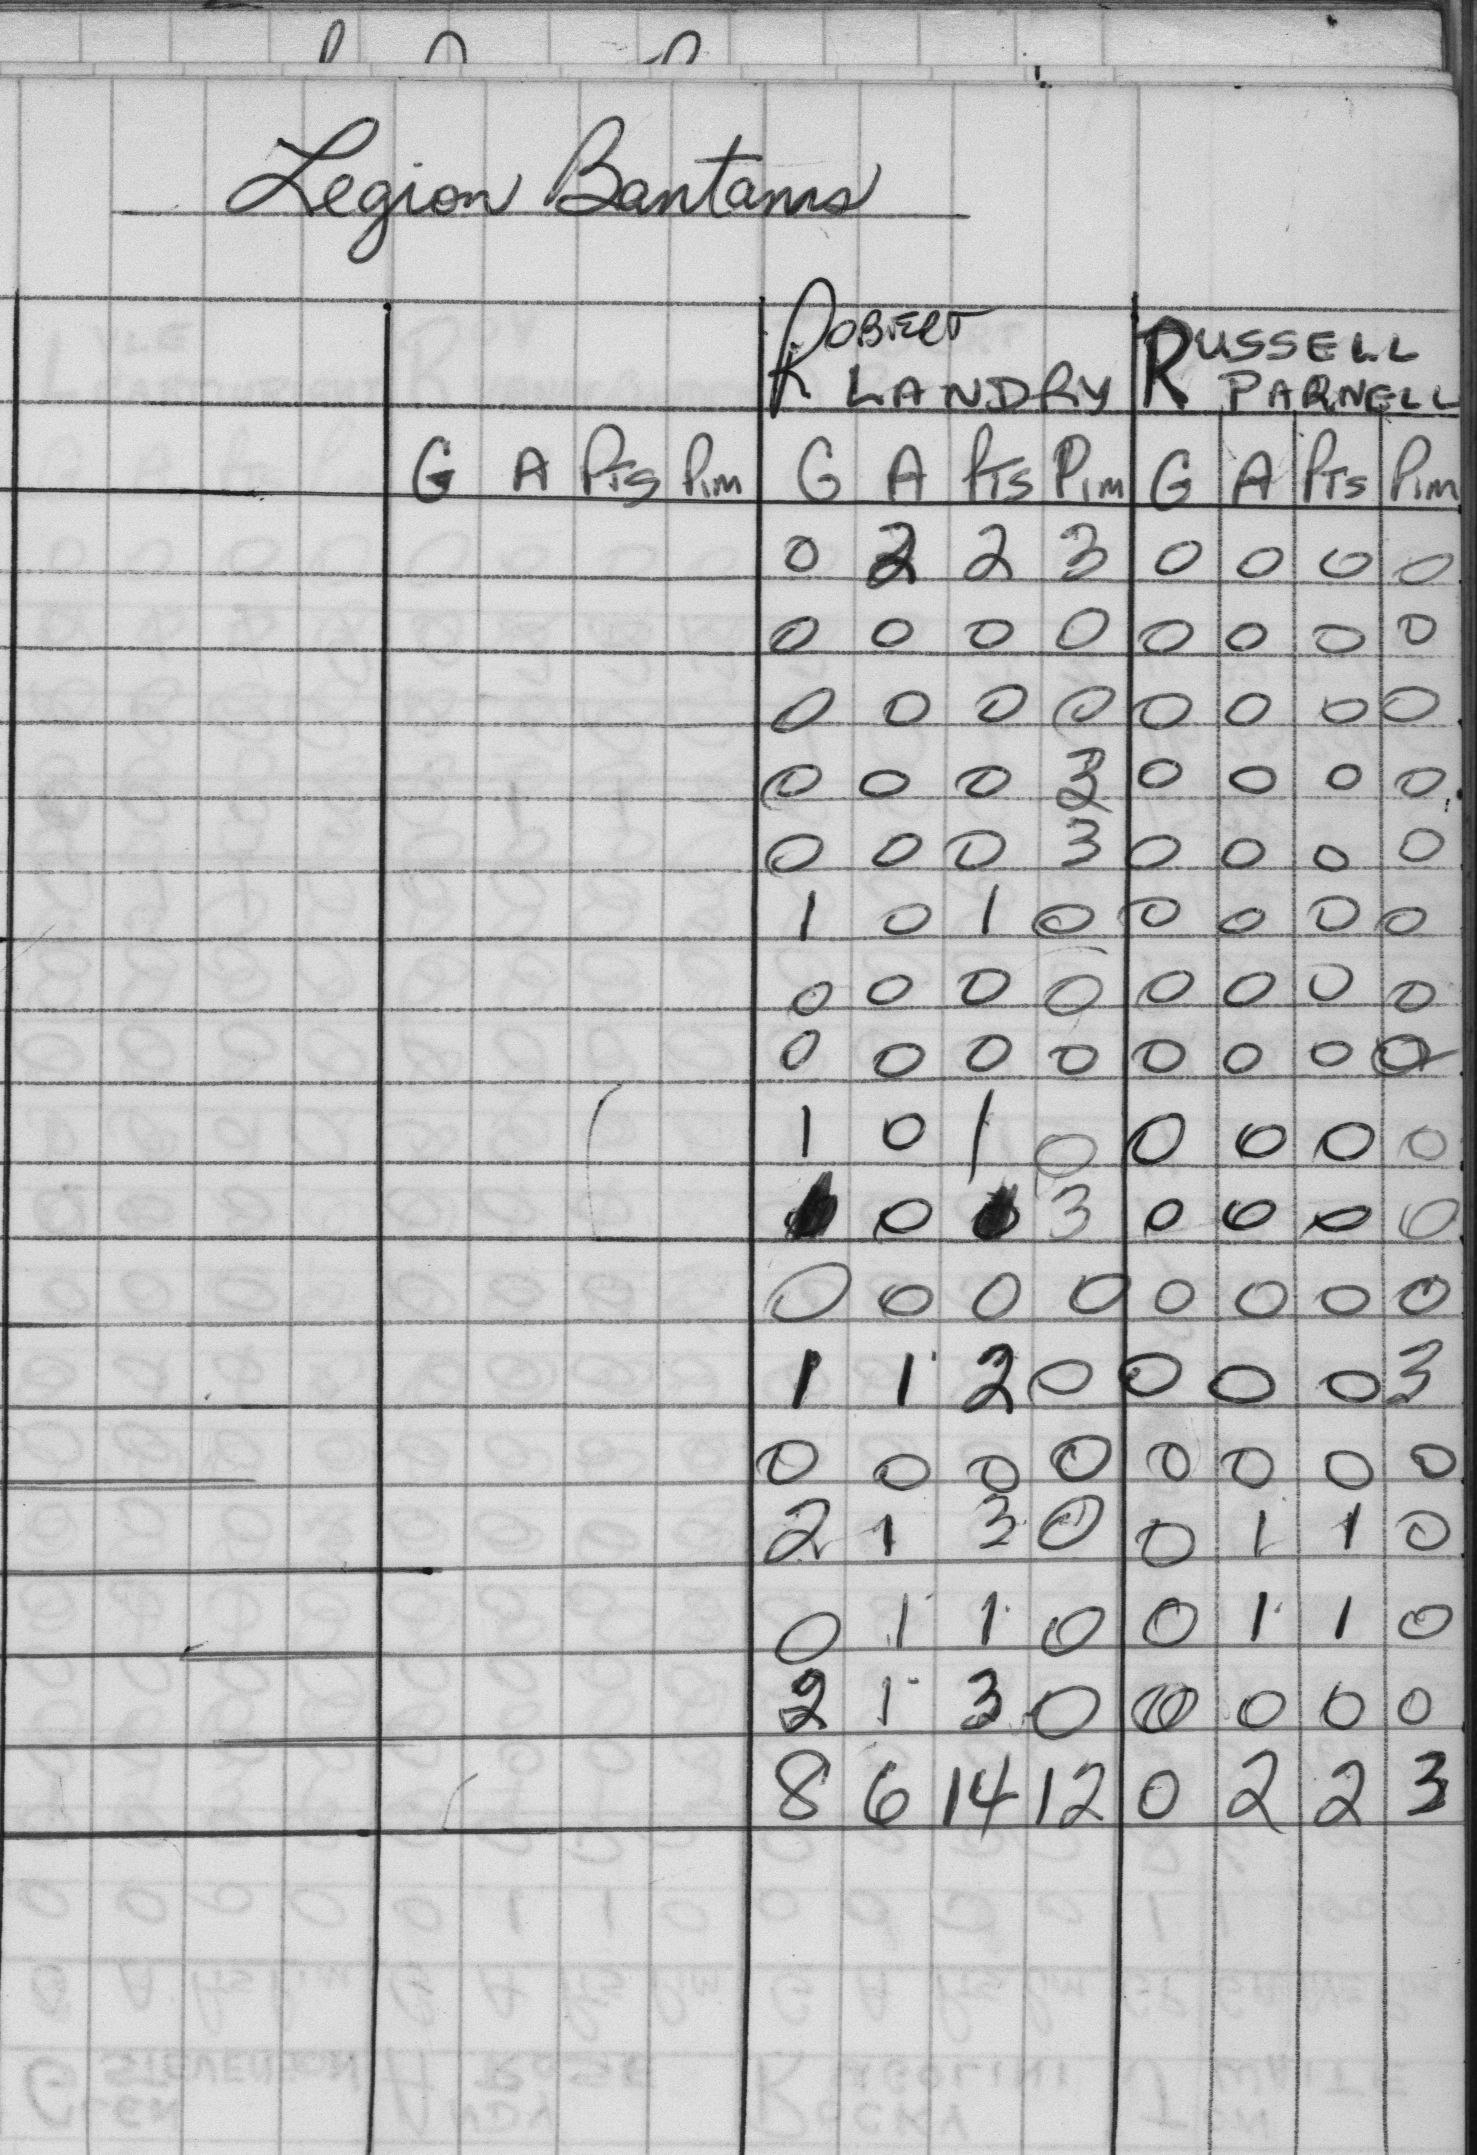 Legion Bantams
ROBERT LANDRY RUSSELL PARNELL
G A Pts Pim G A Pts Pim G A Pts Pim
0 2 2 3 0 0 0 0
0 0 0 0 0 0 0 0
0 0 0 0 0 0 0 0
0 0 0 3 0 0 0 0
0 0 0 3 0 0 0 0
1 0 1 0 0 0 0 0
0 0 0 0 0 0 0 0
0 0 0 0 0 0 0 0
1 0 1 0 0 0 0 0
1 0 1 3 0 0 0 0
0 0 0 0 0 0 0 0
1 1 2 0 0 0 0 3
0 0 0 0 0 0 0 0
2 1 3 0 0 1 1 0
0 1 1 0 0 1 1 0
2 1 3 0 0 0 0 0
8 6 14 12 0 2 2 3